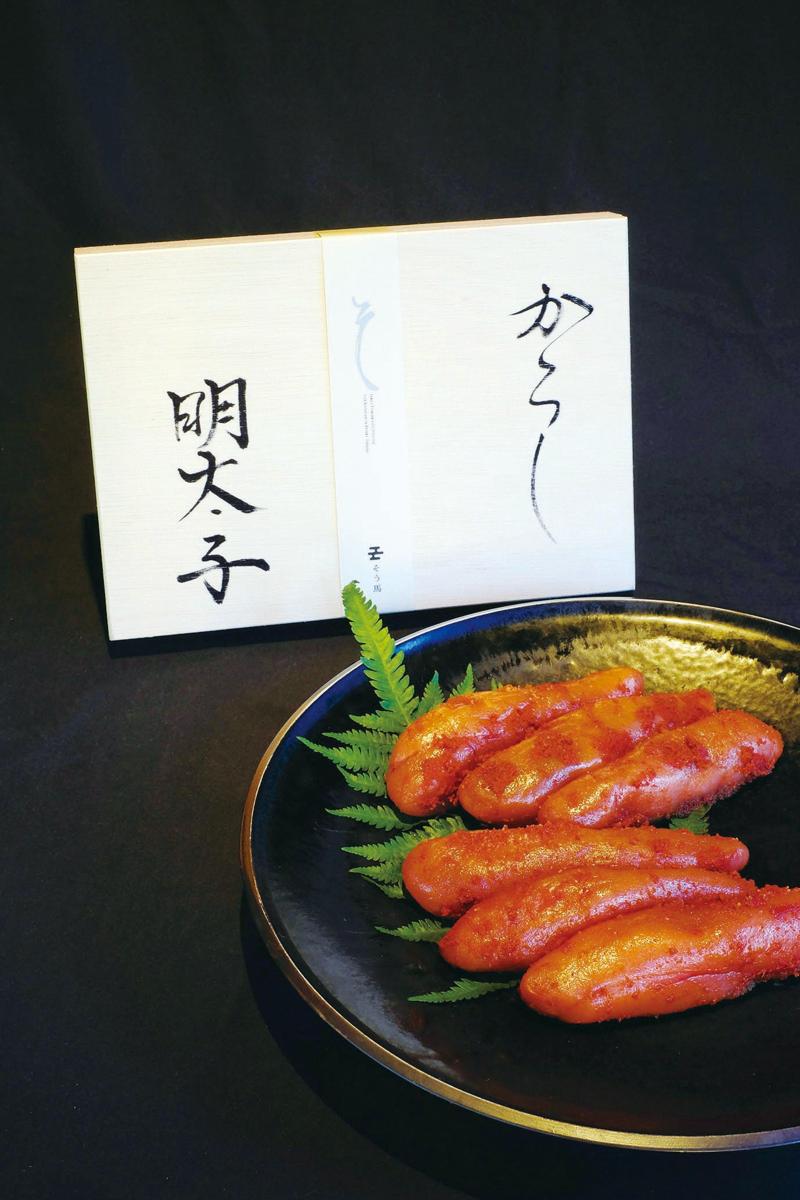 からし
そ
そう馬
明太子